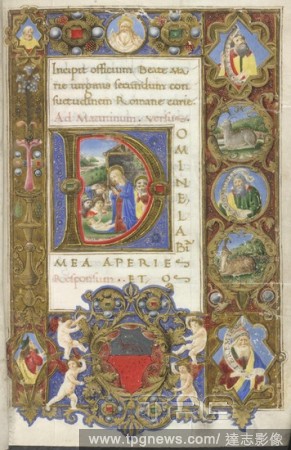 Incipit officium Beate Ma
rie uirginis secundum con
suetudinem Romane curie.
Ad Matutinum. Versus
D
OMINE LABI
MEA APERIE
Responsum ET O
www.tpgnews.com / 達志影像